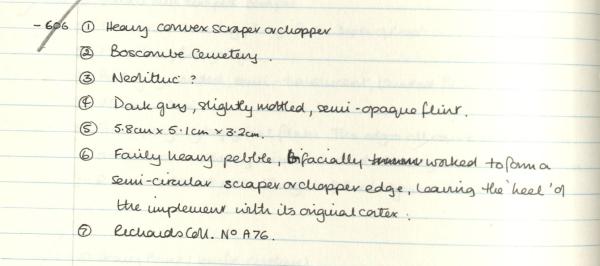 -606 ① Heavy convex scraper or chopper
② Boscombe Cemetery.
③ Neolithic ?
④ Dark grey, slightly mottled, semi-opaque flint.
⑤ 5.8cm x 5.1cm x 3.2cm.
⑥ Fairly heavy pebble, bifacially worked to form a
semi-circular scraper or chopper edge, leaving the 'heel' of
the implement with its original cortex.
⑦ Richards Coll. Nº A76.